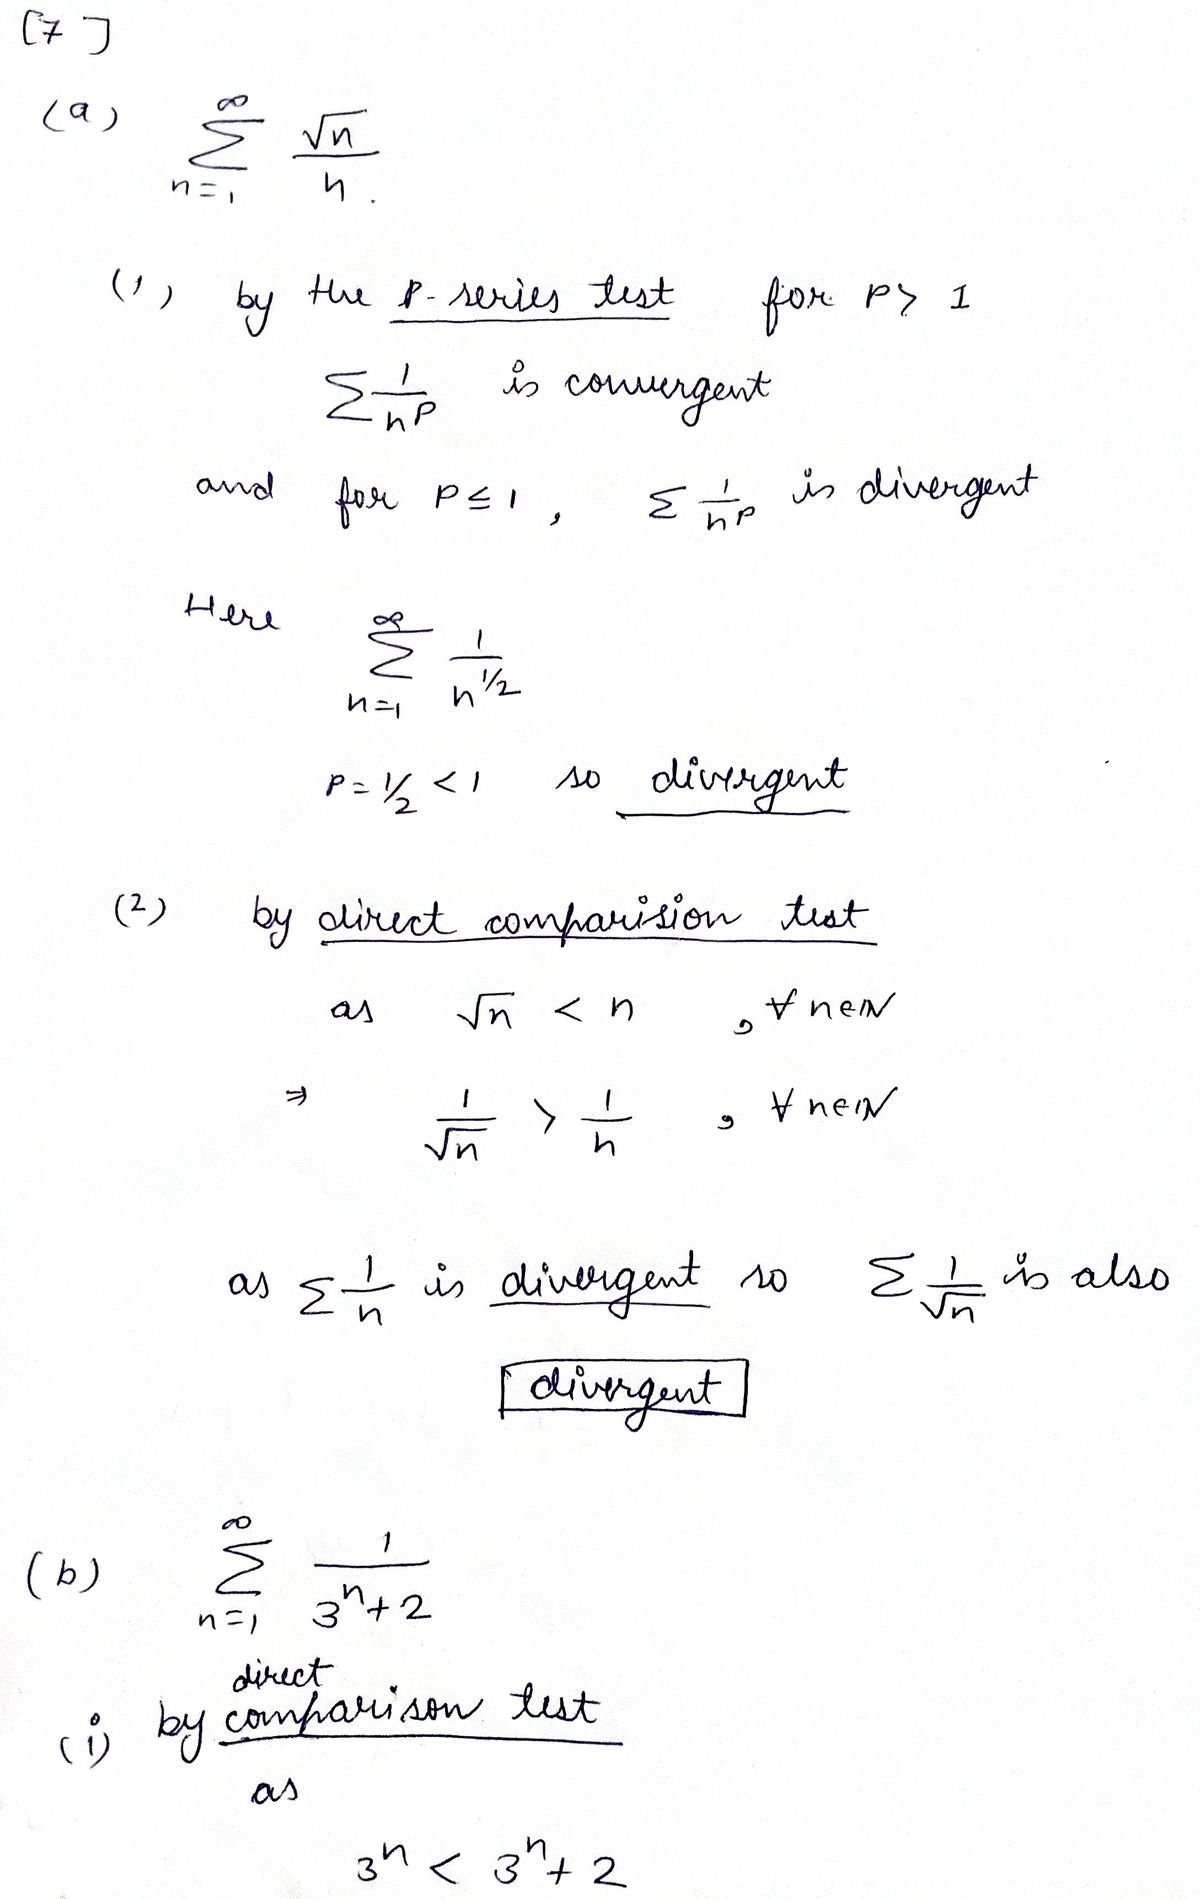 [7]
(a) ∞ ∑ n=1 √n / n.
(1) by the P-series test for P > 1
∑ 1/n^P is convergent
and for P ≤ 1, ∑ 1/n^P is divergent
Here ∞ ∑ n=1 1/n^1/2
P = 1/2 < 1 so divergent
(2) by direct comparision test
as √n < n , ∀ n∈N
⇒ 1/√n > 1/n , ∀ n∈N
as ∑ 1/n is divergent so ∑ 1/√n is also
divergent
(b) ∞ ∑ n=1 1/3^n+2
direct
(i) by comparison test
as
3^n < 3^n+2